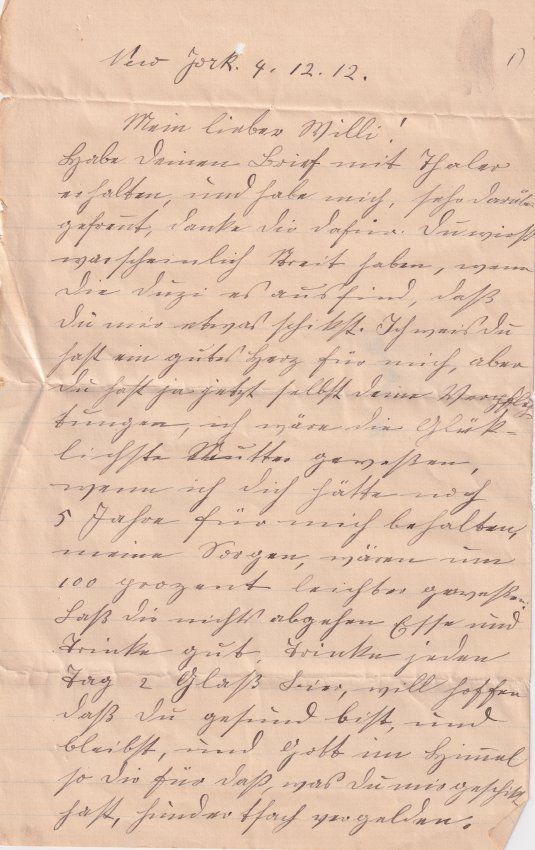 New York. 4. 12. 12.
1)
Mein lieber Willi!
Habe deinen Brief mit Thaler
erhalten, und habe mich, sehr darüber
gefreut, danke dir dafür. Du wirst
warscheinlich Streit haben, wenn
die es ausfind, daß
du mir etwas schikst. Ich weis du
hast ein gutes Herz für mich, aber
du hast ja jetzt selbst deine Verpflich
tungen, ich wäre die Glük-
lichste Mutter geweßen,
wenn ich dich hätte noch
5 Jahre für mich behalten,
meine Sorgen, wären um
100 prozent leichter geweßen.
Laß dir nichts abgehen Esse und
Trinke gut, trinke jeden
Tag 2 Glaß Bier, will hoffen
daß du gesund bist, und
bleibst, und Gott im Himel
so dir für daß, was du mir geschikt
hast, hundertfach vergelden.